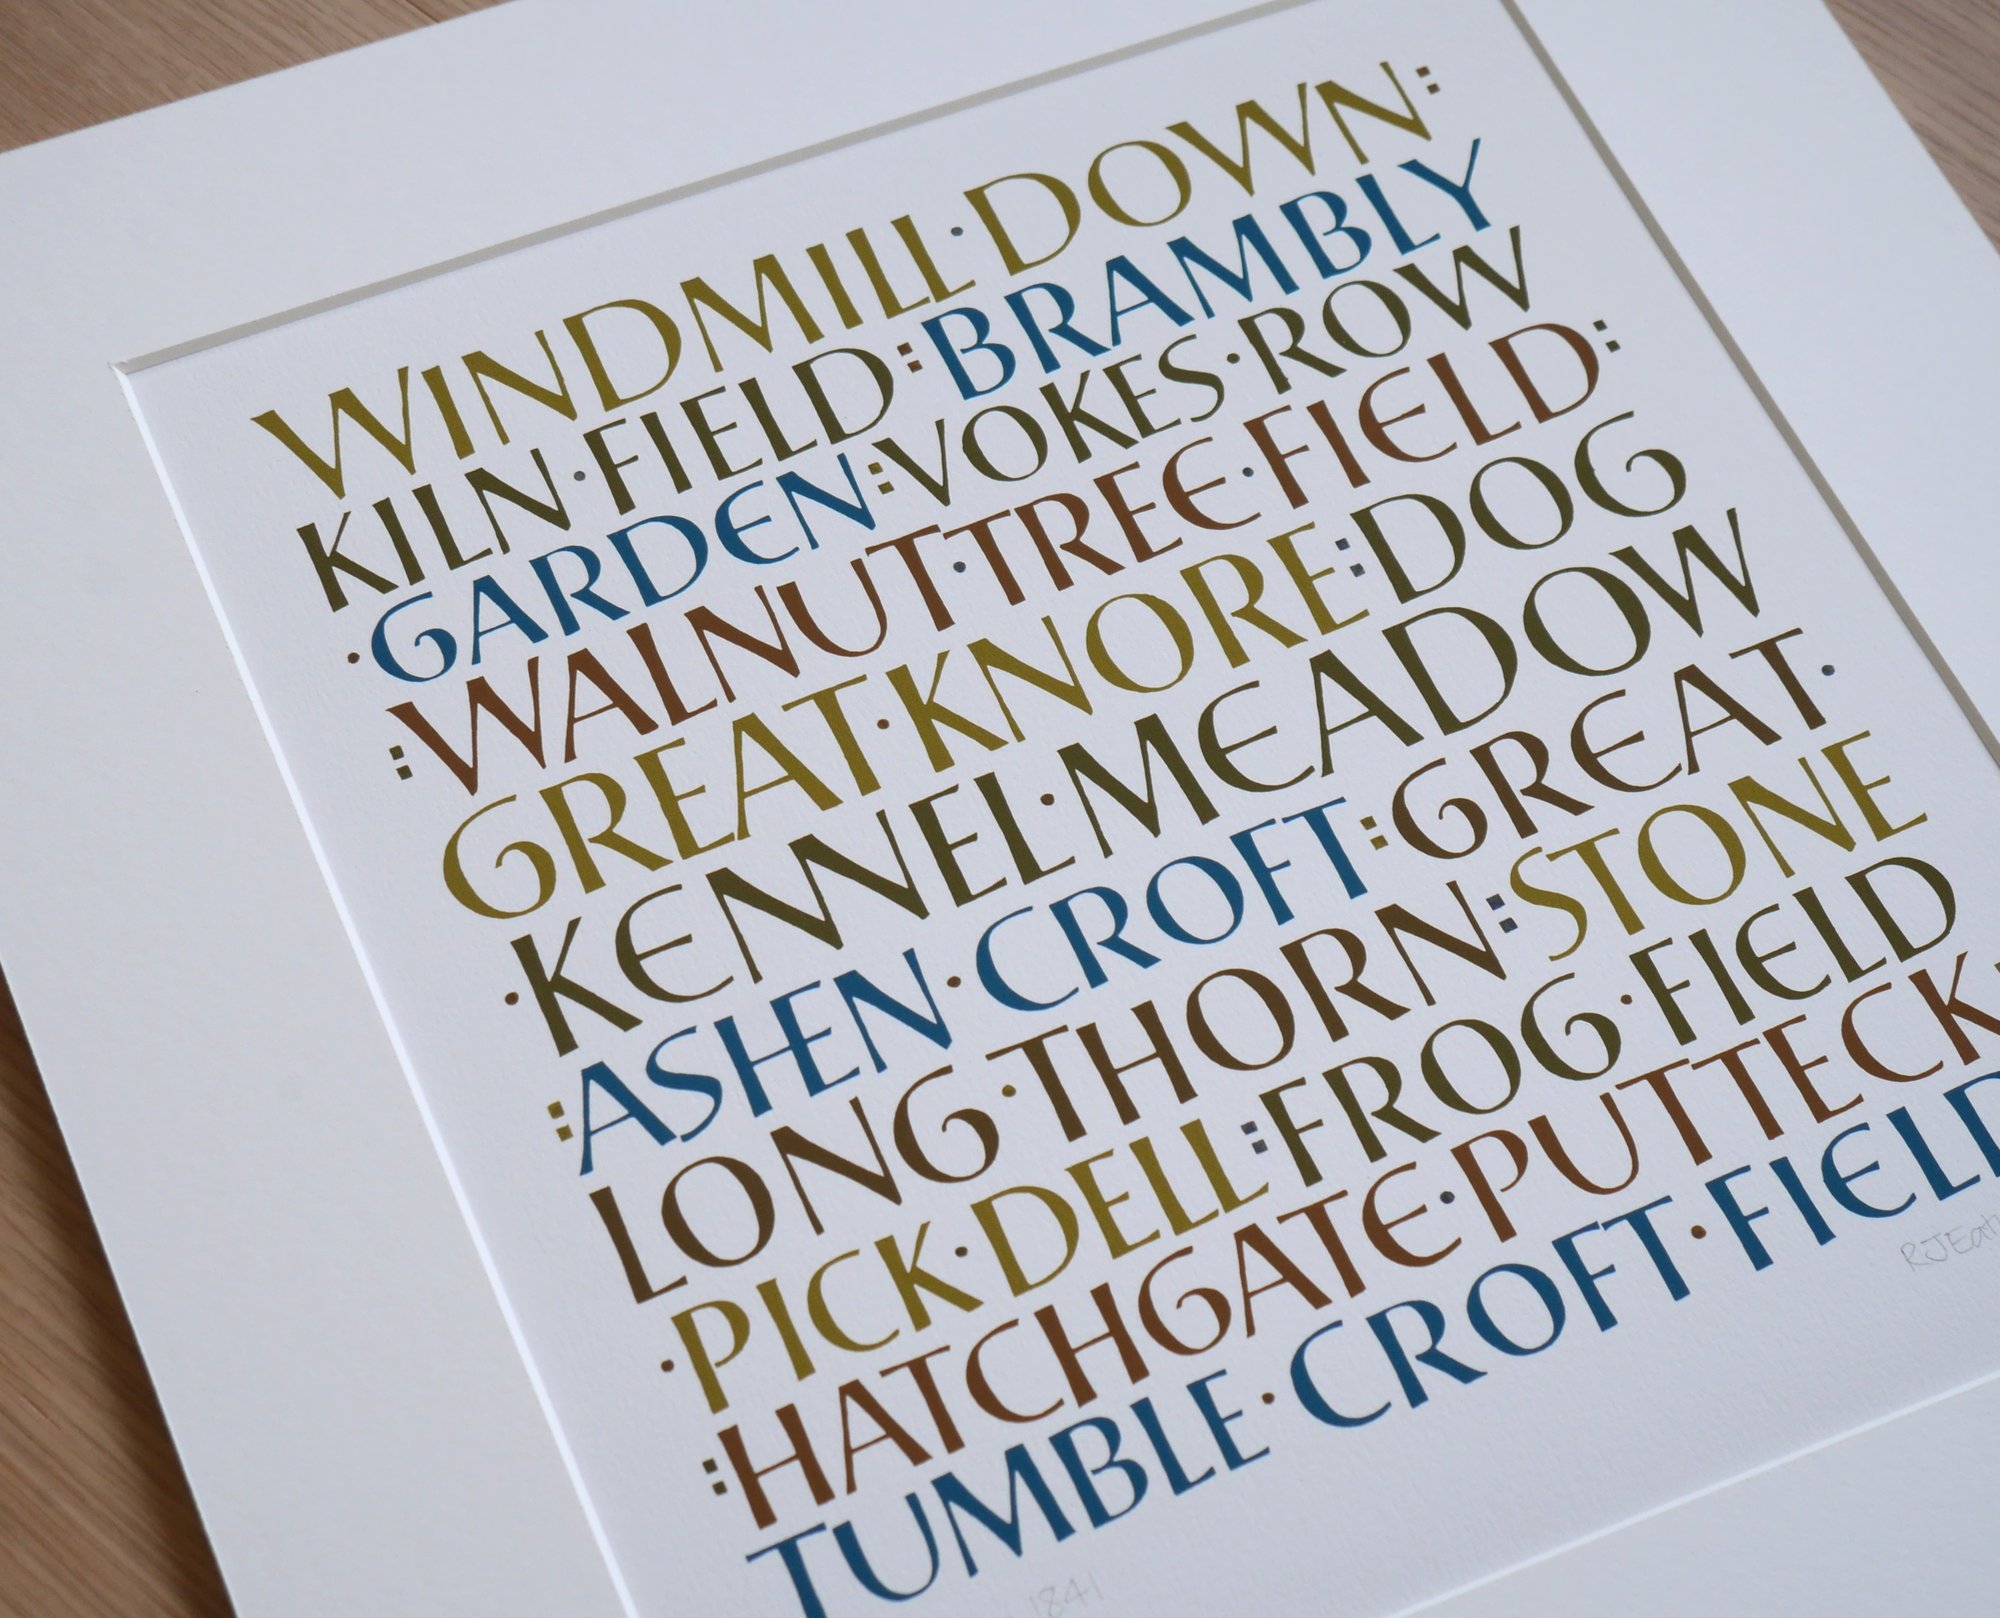 WINDMILL·DOWN:
KILN·FIELD:BRAMBLY
·GARDEN:VOKES·ROW
:WALNUT·TREE·FIELD:
GREAT·KNORE:DOG
·KENNEL·MEADOW
:ASHEN·CROFT:GREAT·
LONG·THORN:STONE
·PICK·DELL:FROG·FIELD
:HATCHGATE·PUTTECK·
TUMBLE·CROFT·FIELD
1841